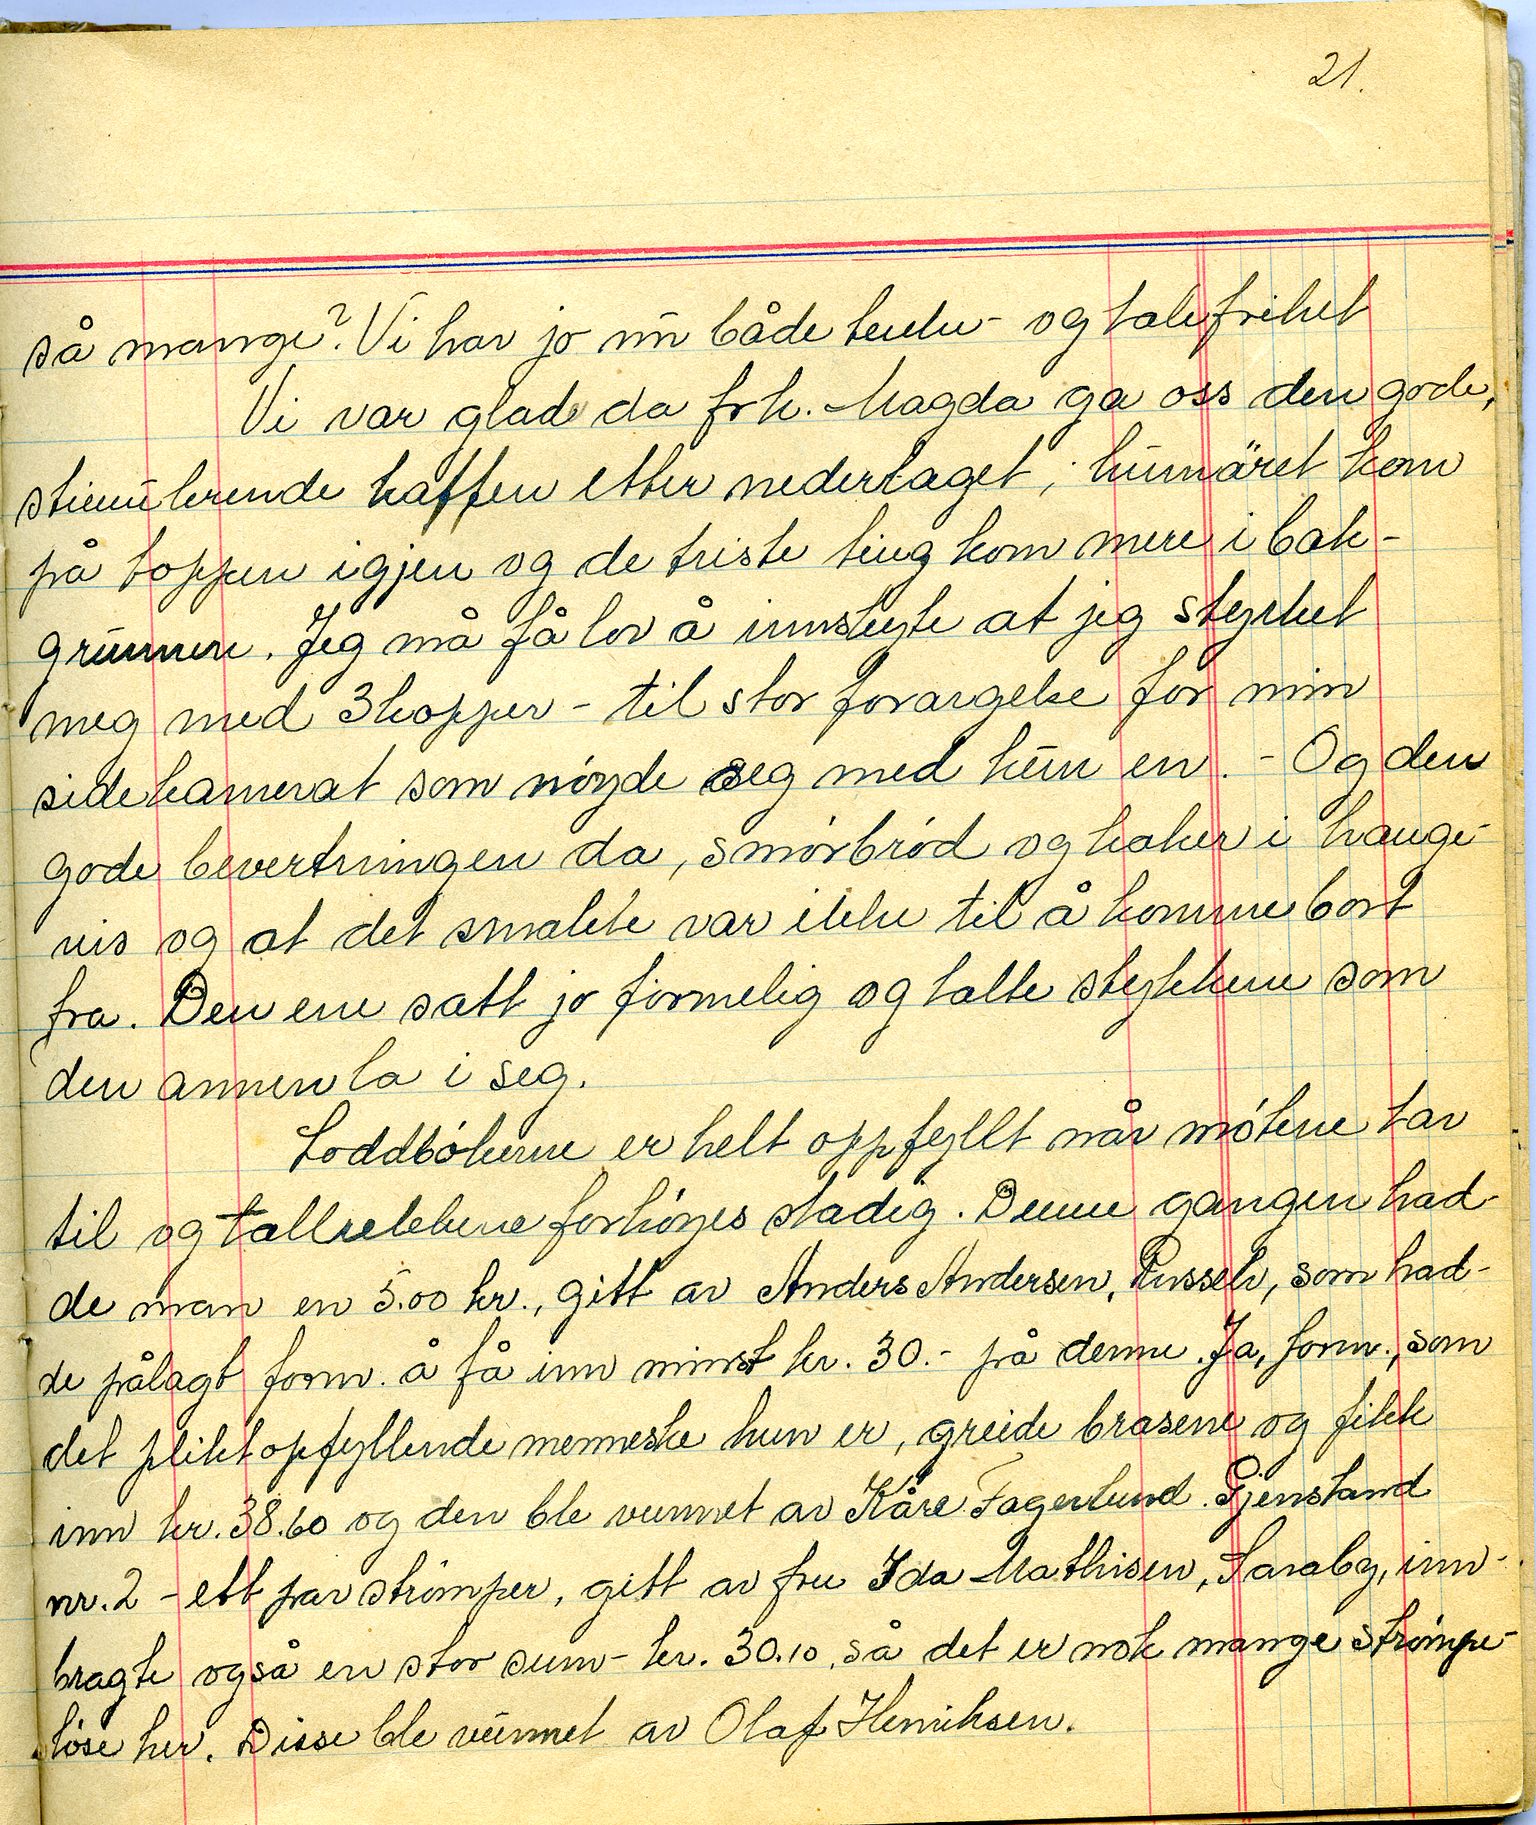 21.
så mange? Vi har jo nu både tenke- og talefrihet
Vi var glade da frk. Magda ga oss den gode,
stimulerende kaffen etter nederlaget; humøret kom
på toppen igjen og de triste ting kom mere i bak-
grunnen. Jeg må få lov å innskyte at jeg styrket
meg med 3 kopper - til stor forargelse for min
sidekamerat som nöyde seg med kun en. - Og den
gode bevertningen da, smörbröd og kaker i hauge-
vis og at det smakte var ikke til å komme bort
fra. Den ene satt jo formelig og talte stykkene som
den annen la i seg.
Loddbökene er helt oppfyllt når mötene tar
til og tallrekkene forhöyes stadig. Denne gangen had-
de man en 5.00 kr., gitt av Anders Andersen, Russelv, som had-
de pålagt form. å få inn minst kr. 30.- på denne. Ja, form., som
det pliktopfyllende menneske hun er, greide brasene og fikk
inn kr. 38.60 og den ble vunnet av Kåre Fagerlund. Gjenstand
nr. 2 - ett par strömper, gitt av fru Ida Mathisen, Saraby, inn-
bragte også en stor sum - kr. 30.10, så det er nok mange strömpe-
löse her. Disse ble vunnet av Olaf Henriksen.